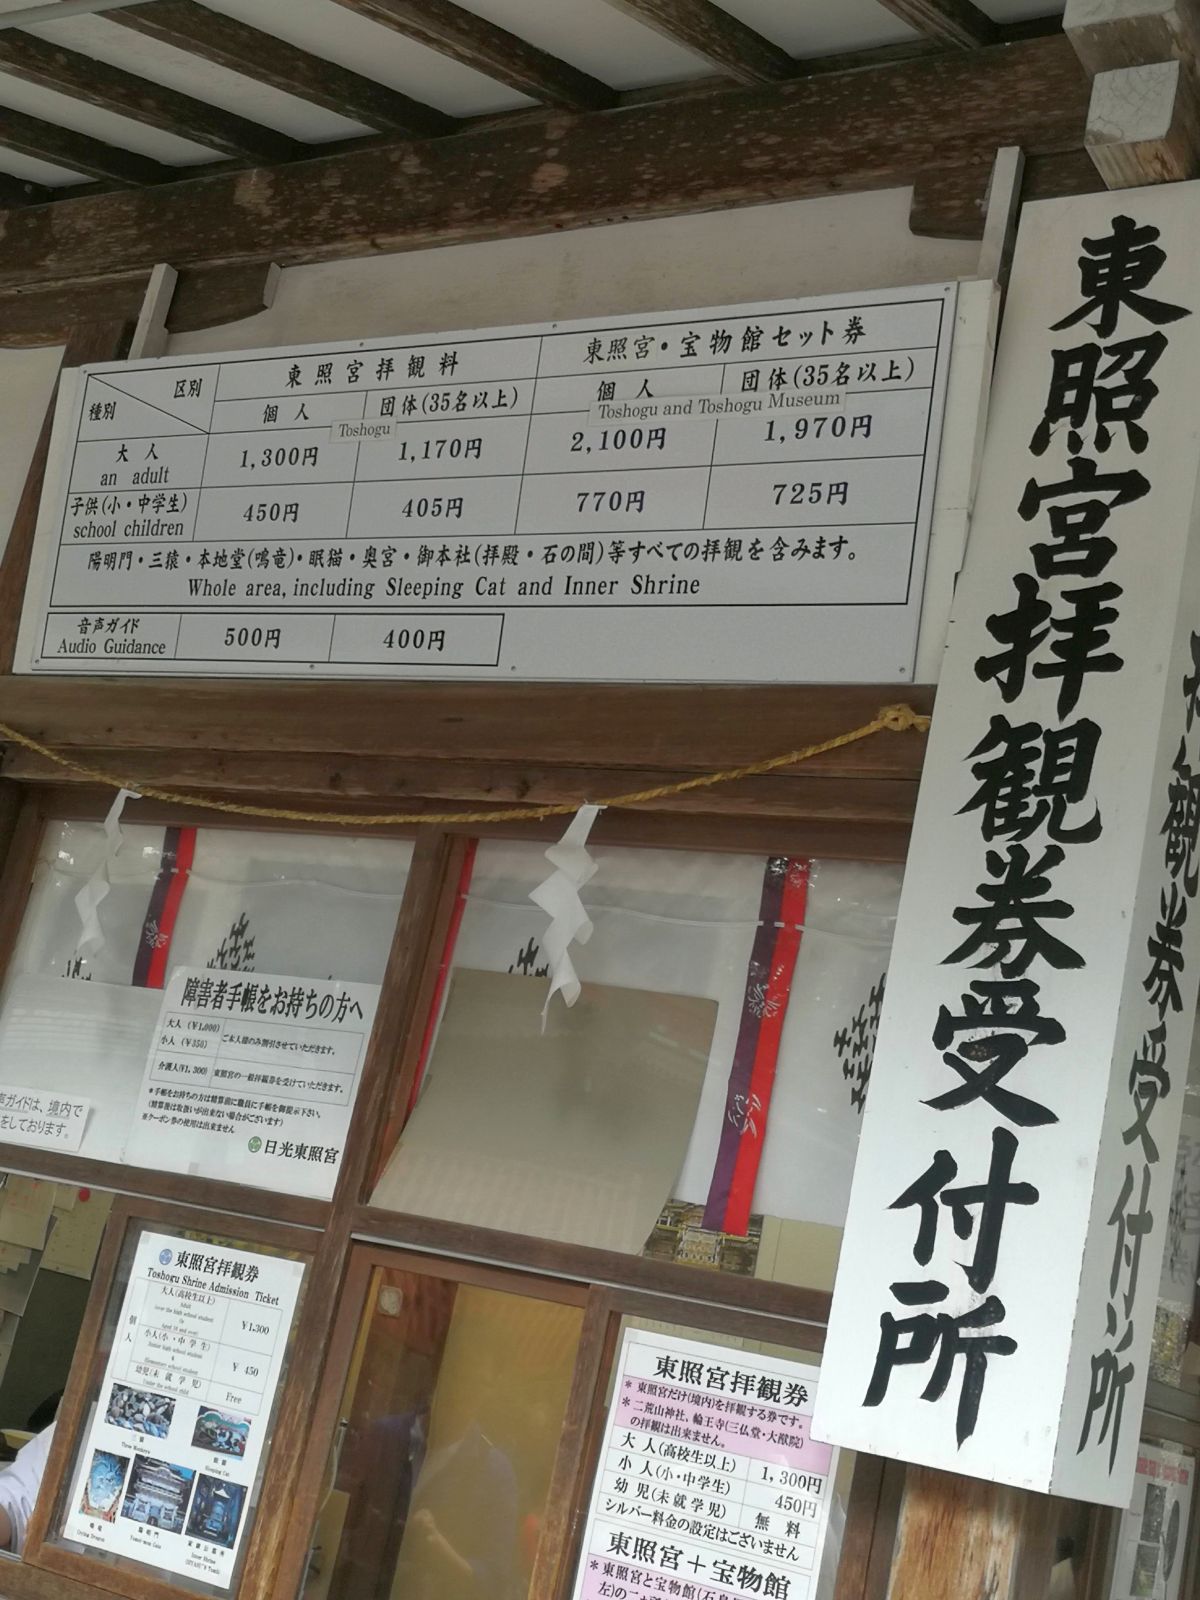 東照宮拝観券受付所
区別
種別
東照宮拝観料
東照宮・宝物館セット券
個人
団体(35名以上)
個人
団体(35名以上)
Toshogu
Toshogu and Toshogu Museum
大人
an adult
1,300円
1,170円
2,100円
1,970円
子供(小・中学生)
school children
450円
405円
770円
725円
陽明門・三猿・本地堂(鳴竜)・眠猫・奥宮・御本社(拝殿・石の間)等すべての拝観を含みます。
Whole area, including Sleeping Cat and Inner Shrine
音声ガイド
Audio Guidance
500円
400円
障害者手帳をお持ちの方へ
大人 (¥1,000)
小人 (¥350)
ご本人様のみ割引させていただきます。
介護人(¥1,300)
東照宮の一般拝観券を受けていただきます。
*手帳をお持ちの方は精算前に職員に手帳を御提示下さい。
(精算後は取扱いが出来ない場合がございます)
※クーポン券の使用は出来ません
日光東照宮
声ガイドは、境内で
をしております。
東照宮拝観券
Toshogu Shrine Admission Ticket
個人
大人(高校生以上)
Adult
¥1,300
小人(小・中学生)
Junior high school student
&
Elementary school student
¥ 450
幼児(未就学児)
Under the school child
Free
三猿
Three Monkeys
眠猫
Sleeping Cat
鳴竜
Crying Dragon
陽明門
Yomei-mon Gate
Inner Shrine
東照宮拝観券
*東照宮だけ(境内)を拝観する券です。
*二荒山神社、輪王寺(三仏堂・大猷院)
の拝観は出来ません。
大人(高校生以上)
1,300円
小人(小・中学生)
450円
幼児(未就学児)
無料
シルバー料金の設定はございません
東照宮+宝物館
*東照宮と宝物館
拝観券受付所